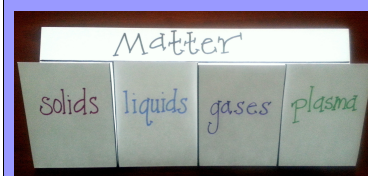 Matter
solids liquids gases plasma